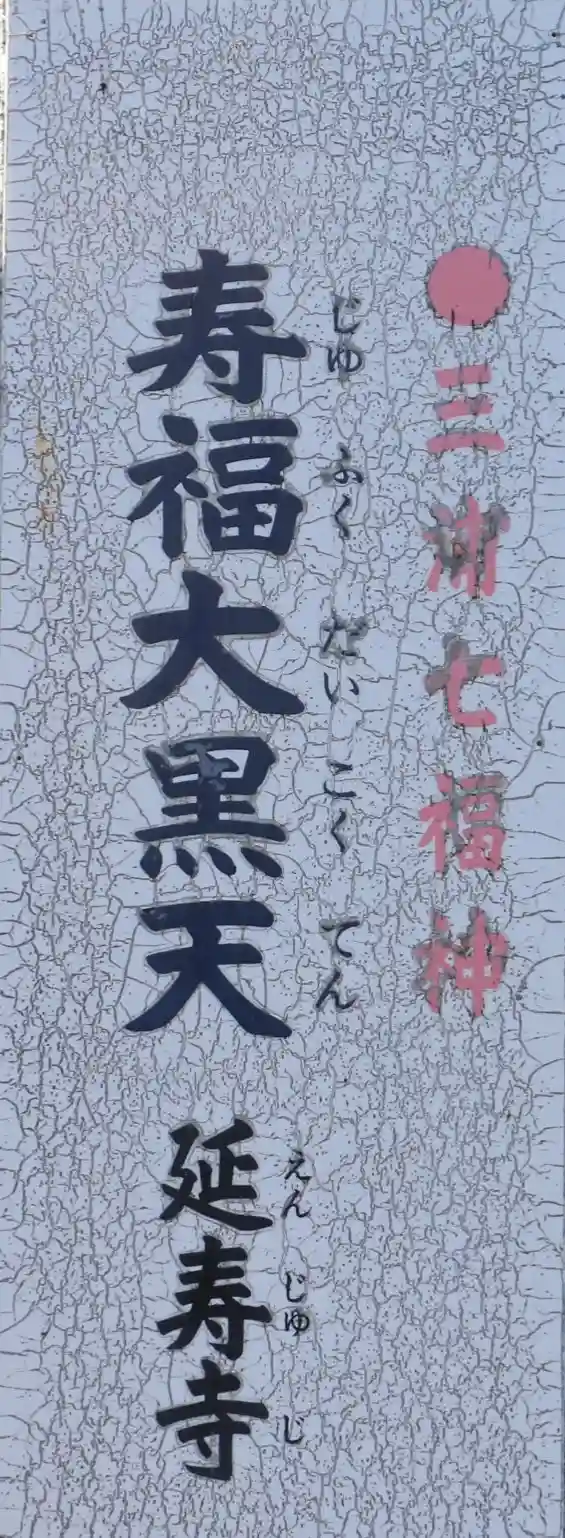 ●三浦七福神
じゅふくだいこくてん
寿福大黒天
えんじゅじ
延寿寺